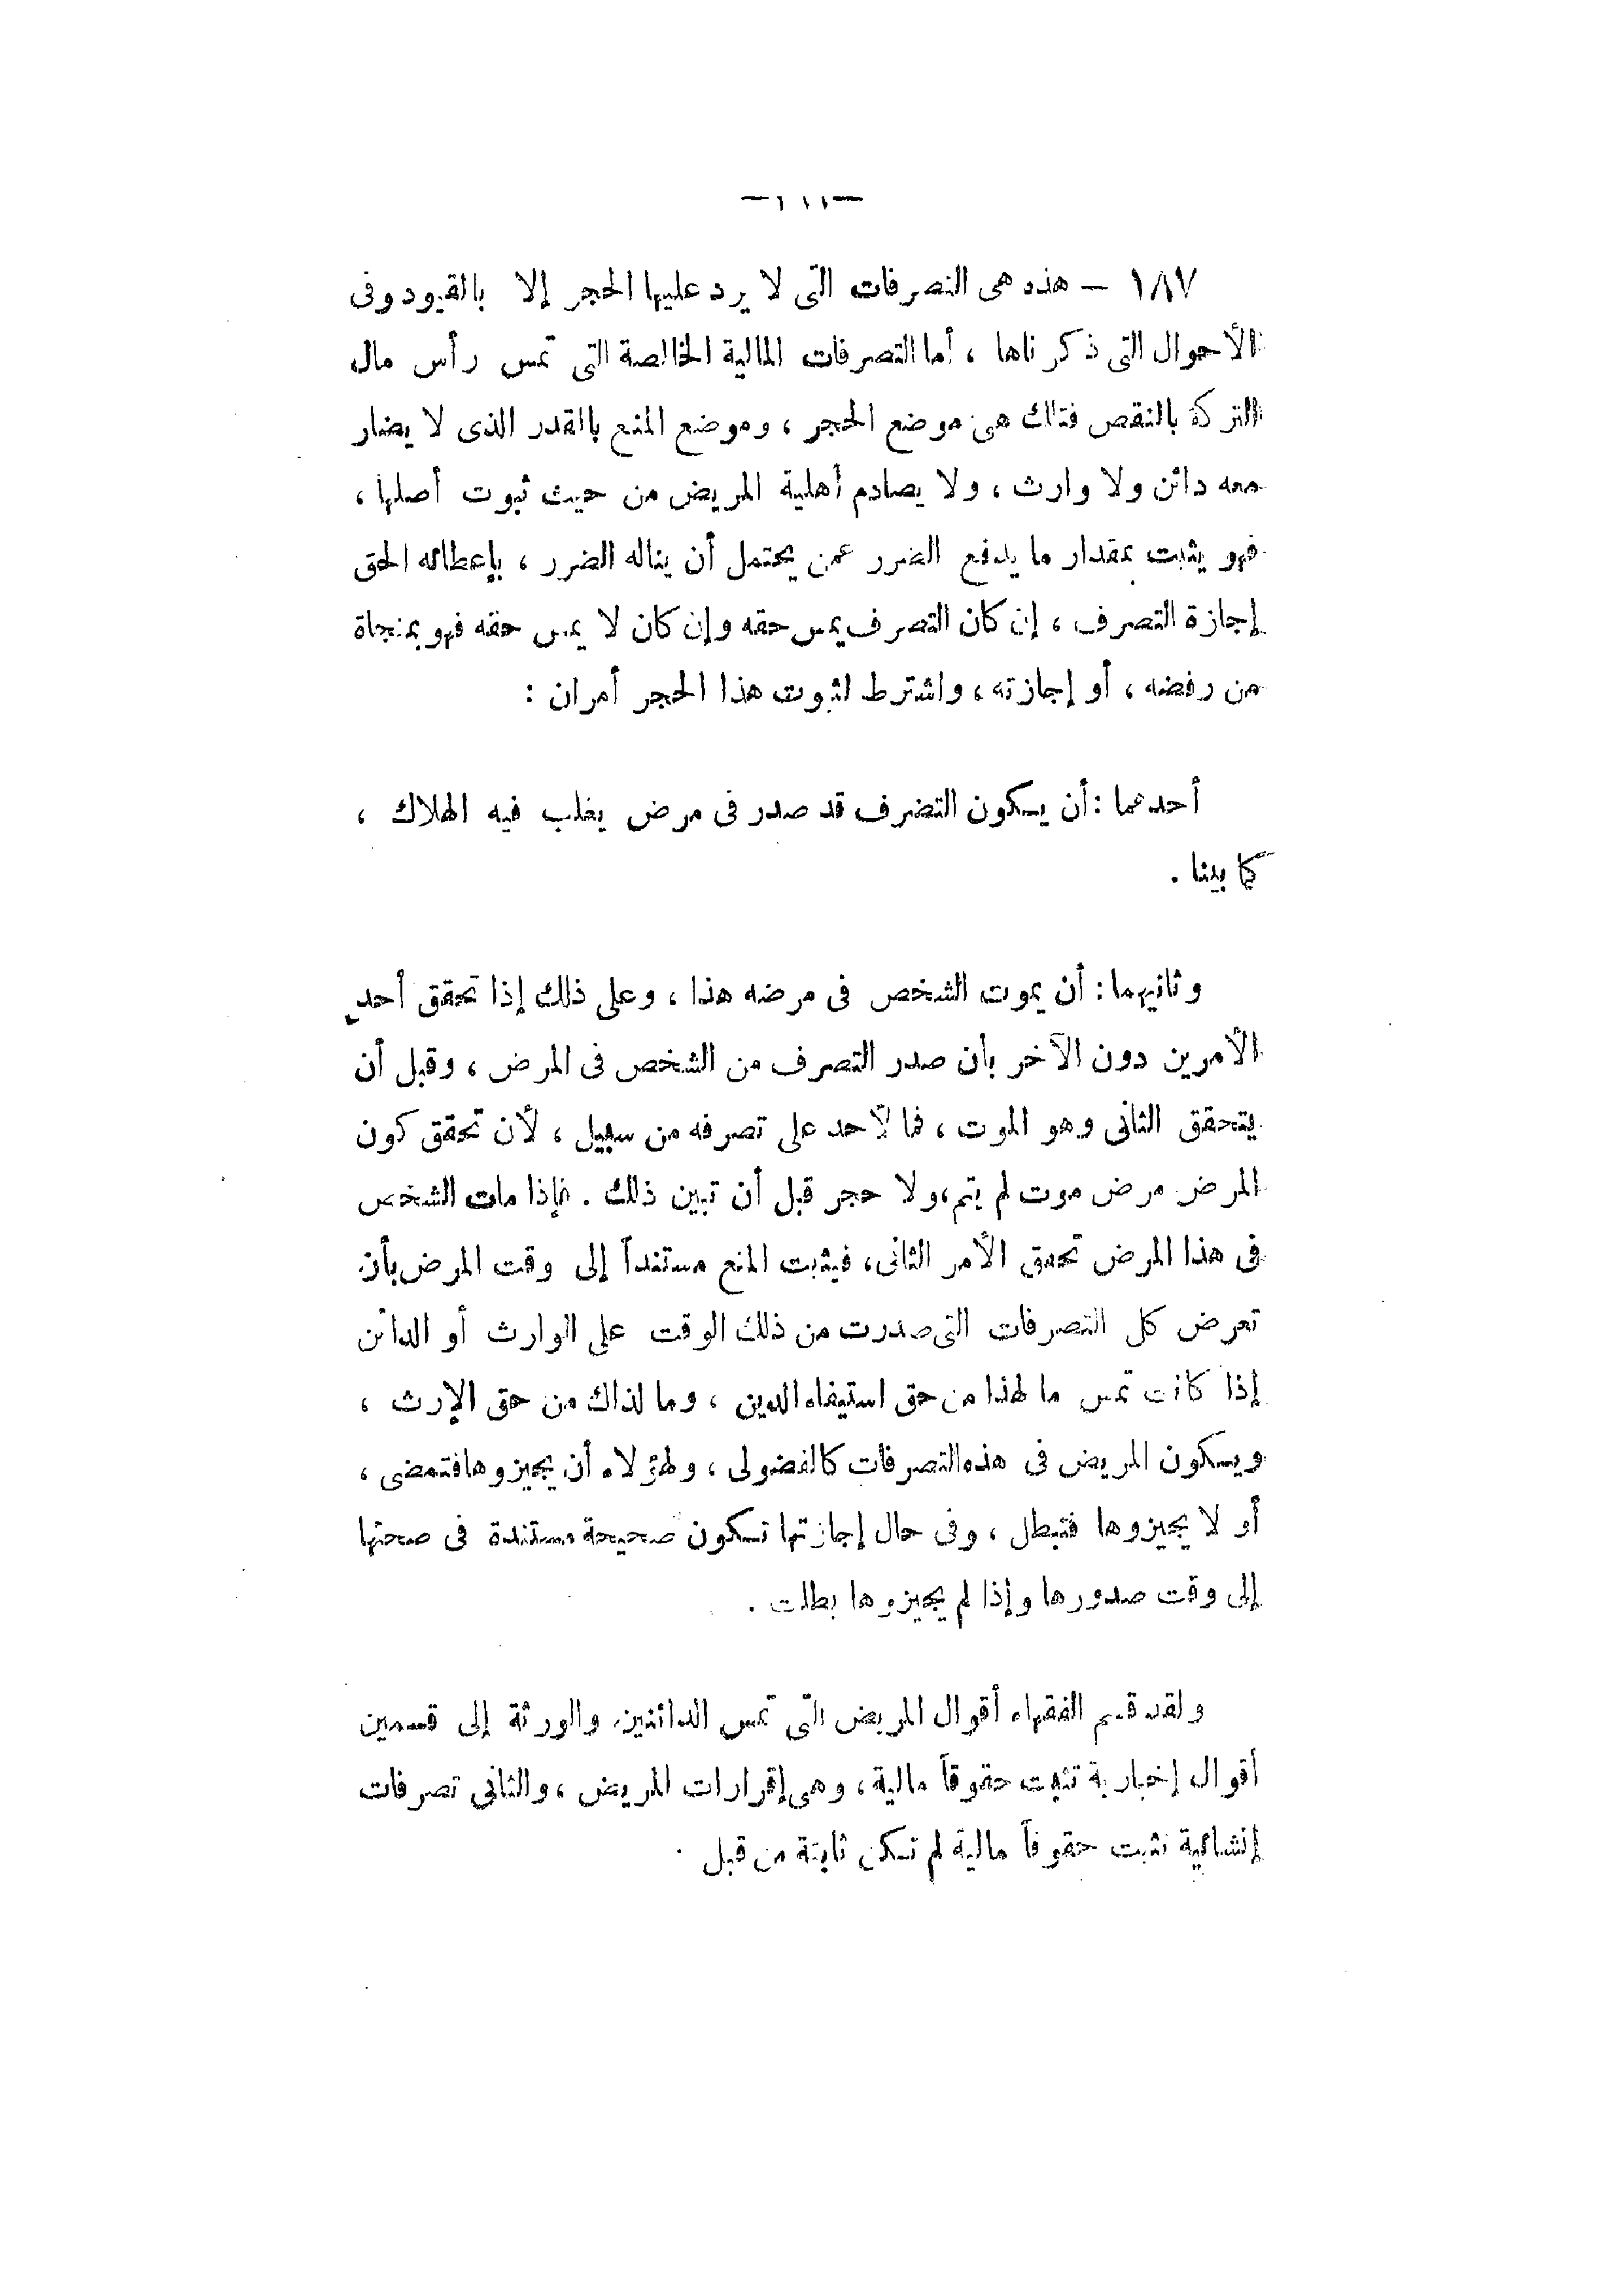 ١٨٧ – هذه هى التصرفات التى لا يرد عليها الحجر إلا بالقيود وفى
الأحوال التى ذكرناها ، أما التصرفات المالية الخالصة التى تمس رأس مال
التركة بالنقص فتلك هى موضع الحجر ، وموضع المنع بالقدر الذى لا يضار
معه دائن ولا وارث ، ولا يصادم أهلية المريض من حيث ثبوت أصلها ،
فهو يثبت بمقدار ما يدفع الضرر عمن يحتمل أن يناله الضرر ، بإعطائه الحق
إجازة التصرف ، إن كان التصرف يمس حقه وإن كان لا يمس حقه فهو بمنجاة
من رفضه ، أو إجازته ، واشترط لثبوت هذا الحجر أمران :
أحدهما : أن يكون التصرف قد صدر فى مرض يغلب فيه الهلاك ،
كما بينا .
وثانيهما : أن يموت الشخص فى مرضه هذا ، وعلى ذلك إذا تحقق أحد
الأمرين دون الآخر بأن صدر التصرف من الشخص فى المرض ، وقبل أن
يتحقق الثانى وهو الموت ، فما لأحد على تصرفه من سبيل ، لأن تحقق كون
المرض مرض موت لم يتم ، ولا حجر قبل أن تبين ذلك . فإذا مات الشخص
فى هذا المرض تحقق الأمر الثانى ، فيثبت المنع مستنداً إلى وقت المرض بأن
تعرض كل التصرفات التى صدرت من ذلك الوقت على الوارث أو الدائن
إذا كانت تمس ما لهذا من حق استيفاء الدين ، وما لذاك من حق الإرث ،
ويكون المريض فى هذه التصرفات كالفضولى ، ولهؤلاء أن يجيزوها فتمضى ،
أو لا يجيزوها فتبطل ، وفى حال إجازتها تكون صحيحة مستندة فى صحتها
إلى وقت صدورها وإذا لم يجيزوها بطلت .
ولقد قسم الفقهاء أقوال المريض التى تمس الدائنين والورثة إلى قسمين
أقوال إخبارية تثبت حقوقاً مالية ، وهى إقرارات المريض ، والثانى تصرفات
إنشائية تثبت حقوقاً مالية لم تكن ثابتة من قبل .